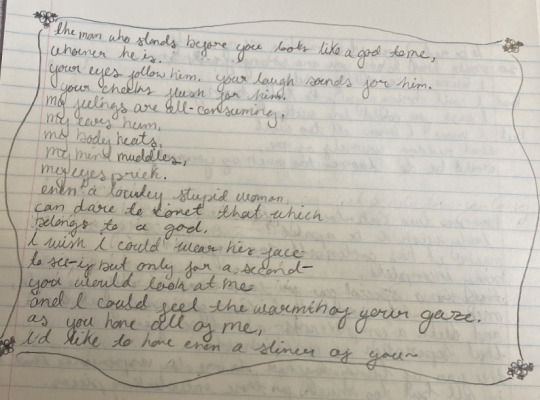 the man who stands before you looks like a god to me,
whoever he is.
your eyes follow him. your laugh sounds for him.
your cheeks flush for him.
my feelings are all-consuming,
my ears hum,
my body heats,
my mind muddles,
my eyes prick.
even a lowley stupid woman
can dare to covet that which
belongs to a god.
i wish i could wear his face
to see-if but only for a second-
you would look at me
and i could feel the warmth of your gaze.
as you have all of me,
i'd like to have even a sliver of you~